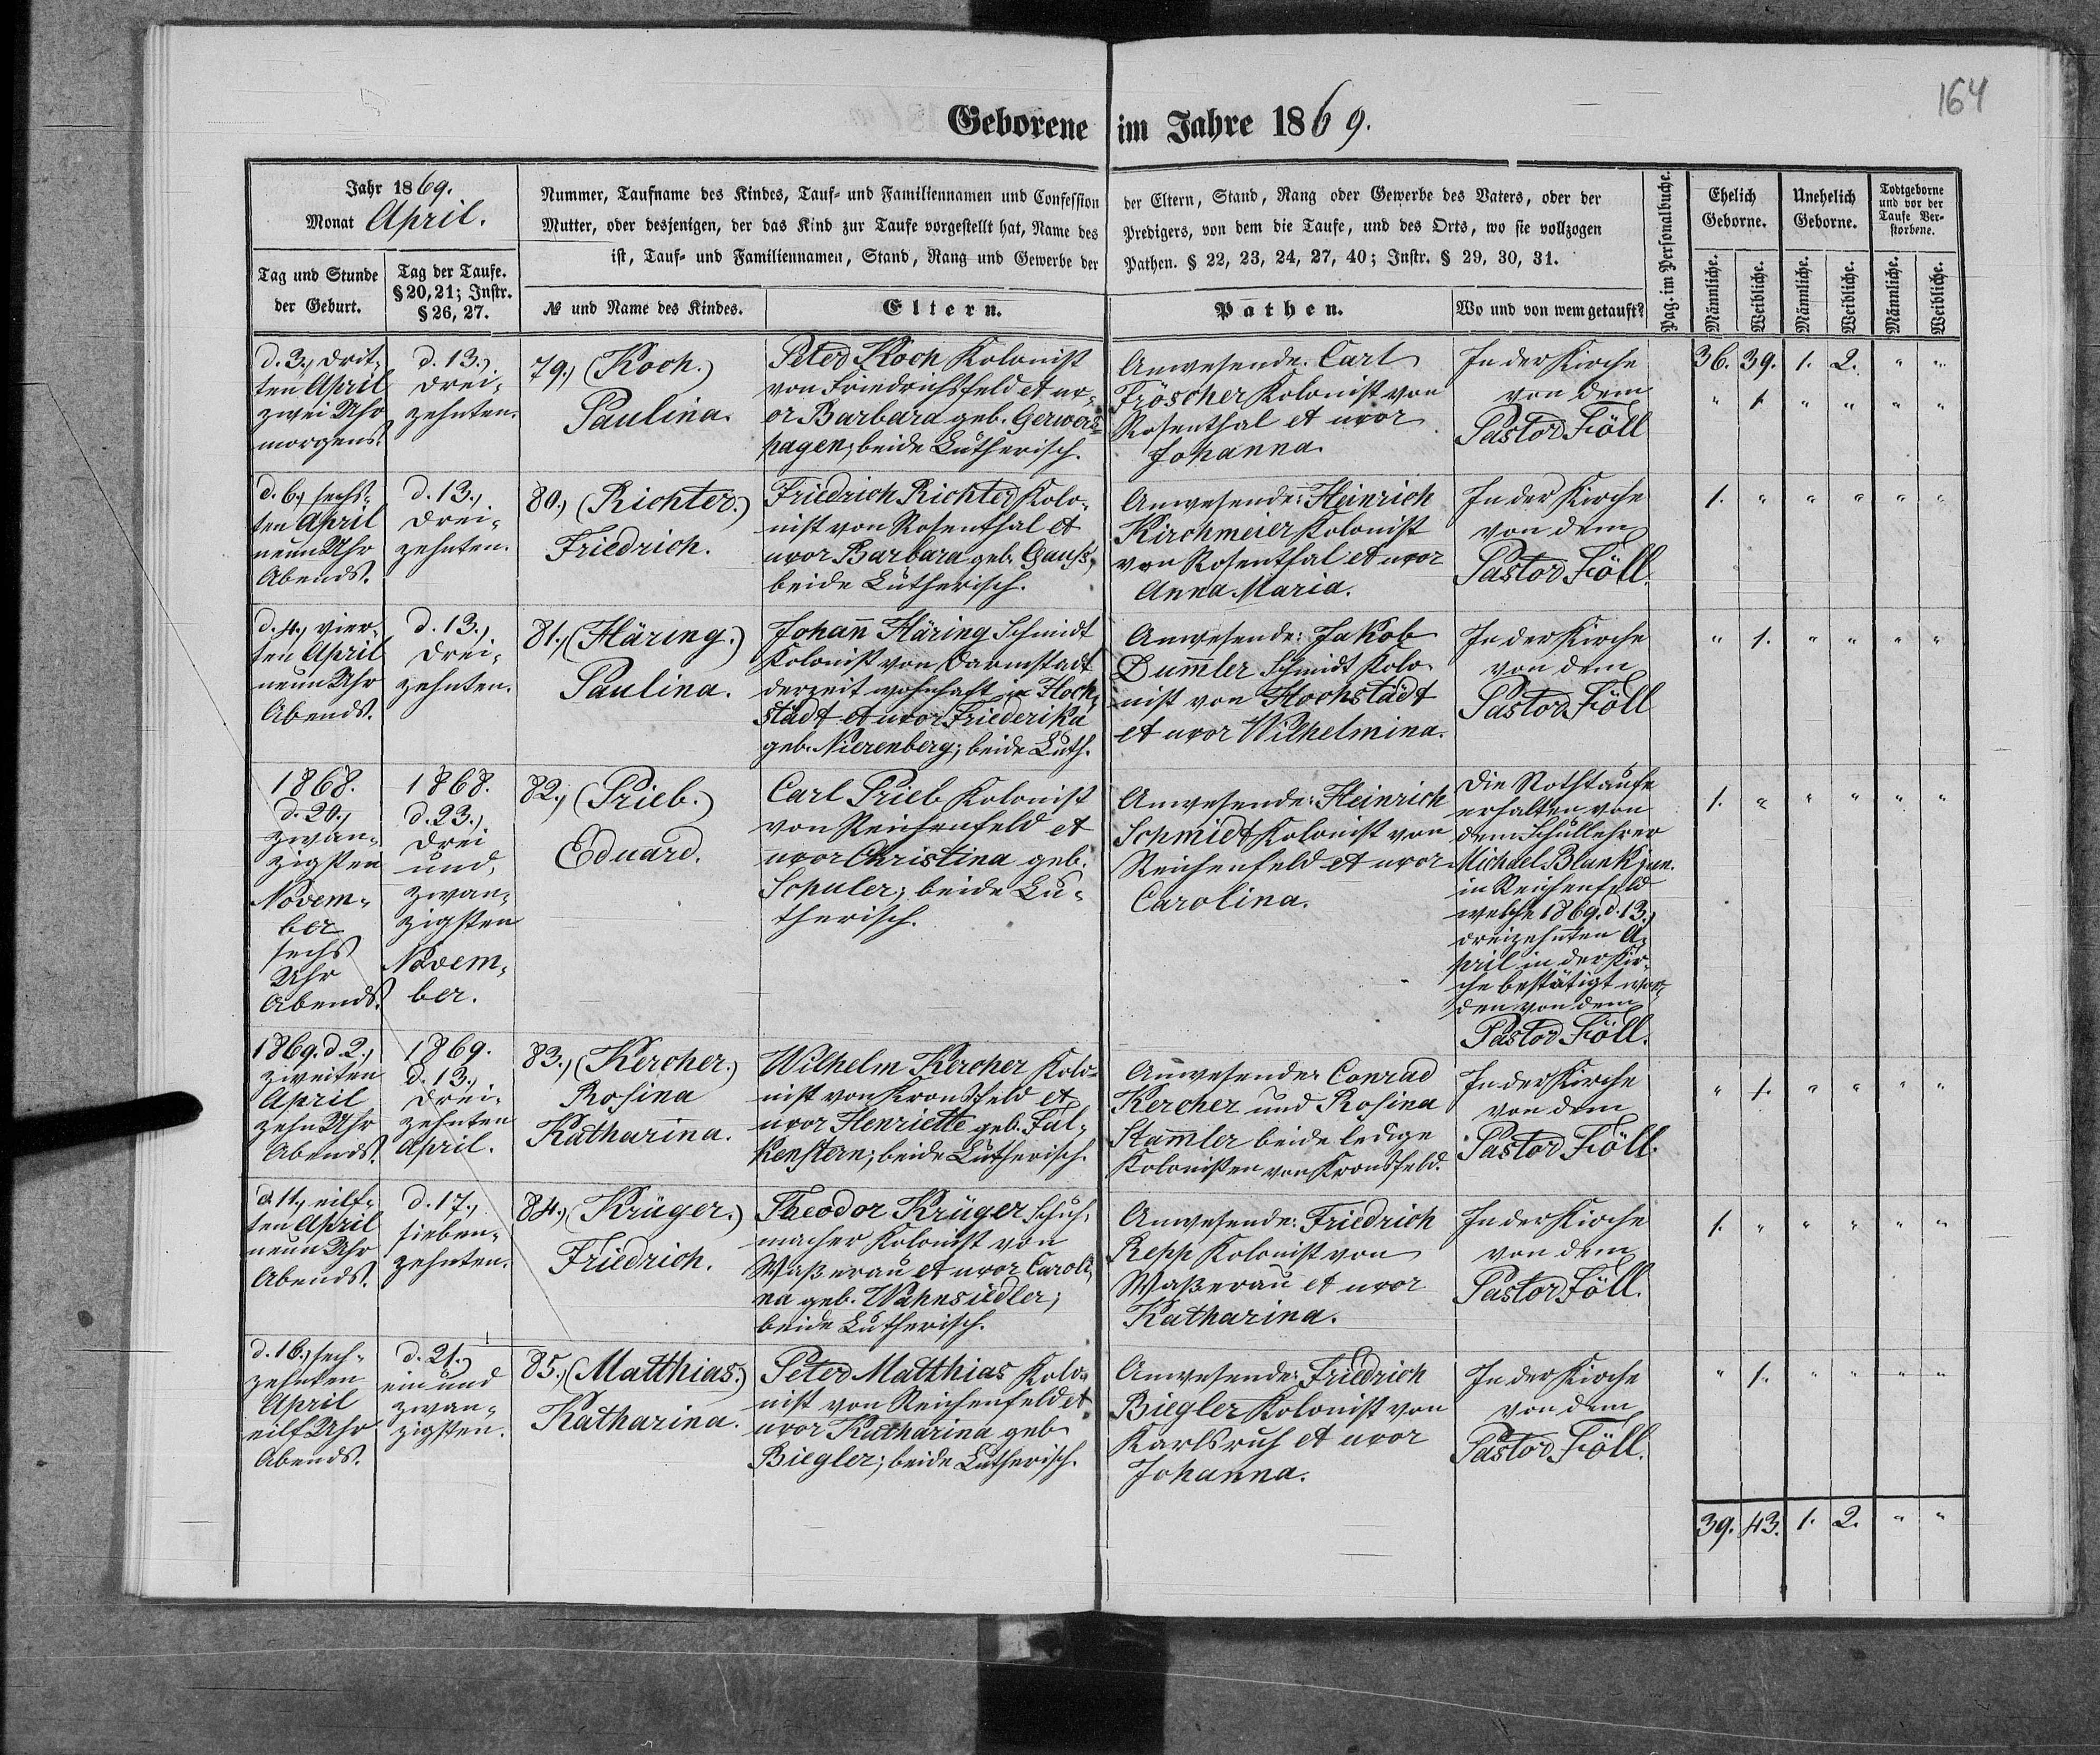 164
Geborene im Jahre 1869.
Jahr 1869.
Monat April.
Nummer, Taufname des Kindes, Tauf- und Familiennamen und Confession der Eltern, Stand, Rang oder Gewerbe des Vaters, oder der
Mutter, oder desjenigen, der das Kind zur Taufe vorgestellt hat, Name des Predigers, von dem die Taufe, und des Orts, wo sie vollzogen
ist, Tauf- und Familiennamen, Stand, Rang und Gewerbe der Pathen. § 22, 23, 24, 27, 40; Instr. § 29, 30, 31.
Tag und Stunde
der Geburt.
Tag der Taufe.
§ 20, 21; Instr.
§ 26, 27.
№ und Name des Kindes.
Eltern.
Pathen.
Wo und von wem getauft?
Pag. im Personalbuche.
Ehelich
Geborne.
Unehelich
Geborne.
Todtgeborne
und vor der
Taufe Ver-
storbene.
Männliche.
Weibliche.
Männliche.
Weibliche.
Männliche.
Weibliche.
d. 3., drit-
ten April
zwei Uhr
morgens.
d. 13.,
drei-
zehnten.
79.) (Koch.)
Paulina.
Peter Koch Kolonist
von Friedrichsfeld et ux-
or Barbara geb. Gerwers-
hagen; beide Lutherisch.
Anwesende: Carl
Fröscher Kolonist von
Rosenthal et uxor
Johanna.
In der Kirche
von dem
Pastor Föll
36. 39. 1. 2. " "
" 1 " " " "
d. 6., sechs-
ten April
neun Uhr
Abends.
d. 13.,
drei-
zehnten.
80.) (Richter.)
Friedrich.
Friedrich Richter Kolo-
nist von Rosenthal et
uxor Barbara geb. Gauss,
beide Lutherisch.
Anwesende: Heinrich
Kirchmeier Kolonist
von Rosenthal et uxor
Anna Maria.
In der Kirche
von dem
Pastor Föll.
1. " " " " "
d. 4., vier-
ten April
neun Uhr
Abends.
d. 13.,
drei-
zehnten.
81.) (Häring.)
Paulina.
Johann Häring Schmidt
Kolonist von Darmstadt
derzeit wohnhaft in Hoch-
städt et uxor Friederika
geb. Nierenberg; beide Luth.
Anwesende: Jakob
Dum̄ler Schmidt Kolo-
nist von Hochstädt
et uxor Wilhelmina.
In der Kirche
von dem
Pastor Föll
" 1. " " " "
1868.
d. 20.,
zwan-
zigsten
Novem-
ber
sechs
Uhr
Abends.
1868.
d. 23.,
drei
und
zwan-
zigsten
Novem-
ber.
82.) (Prieb.)
Eduard.
Carl Prieb Kolonist
von Reichenfeld et
uxor Christina geb.
Schuler; beide Lu-
therisch.
Anwesende: Heinrich
Schmidt Kolonist von
Reichenfeld et uxor
Carolina.
Die Nothtaufe
erhalten von
dem Schullehrer
Michael Blank jun.
in Reichenfeld
welche 1869. d. 13.,
dreizehnten A-
pril in der Kir-
che bestätigt wor-
den von dem
Pastor Föll.
1. " " " " "
1869. d. 2.,
zweiten
April
zehn Uhr
Abends.
1869.
d. 13.,
drei-
zehnten
April.
83.) (Kercher.)
Rosina
Katharina.
Wilhelm Kercher Kolo-
nist von Kronsfeld et
uxor Henriette geb. Fal-
kenstern; beide Lutherisch.
Anwesende: Conrad
Kercher und Rosina
Stam̄ler beide ledige
Kolonisten von Kronsfeld.
In der Kirche
von dem
Pastor Föll.
" 1. " " " "
d. 11., eilf-
ten April
neun Uhr
Abends.
d. 17.,
sieben-
zehnten.
84.) (Krüger.)
Friedrich.
Theodor Krüger Schuh-
macher Kolonist von
Waßerau et uxor Caroli-
na geb. Wahnsiedler;
beide Lutherisch.
Anwesende: Friedrich
Repp Kolonist von
Waßerau et uxor
Katharina.
In der Kirche
von dem
Pastor Föll.
1. " " " " "
d. 16., sech-
zehnten
April
eilf Uhr
Abends.
d. 21.,
ein und
zwan-
zigsten.
85.) (Matthias.)
Katharina.
Peter Matthias Kolo-
nist von Reichenfeld et
uxor Katharina geb.
Biegler; beide Lutherisch.
Anwesende: Friedrich
Biegler Kolonist von
Karlsruh et uxor
Johanna.
In der Kirche
von dem
Pastor Föll.
" 1. " " " "
39. 43. 1. 2. " "